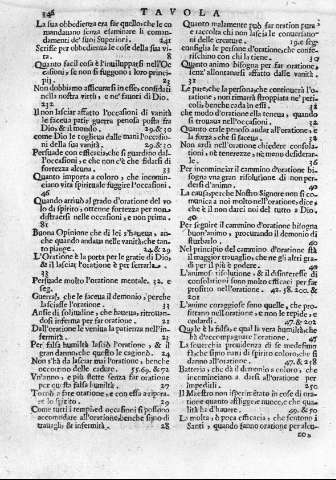 346 TAVOLA
La sua obbedienza era far quello, che le co
mandauano senza esaminare li comanda
menti de' suoi Superiori. 241
Scrisse per obbedienza le cose della sua vi-
ta. 8
Quanto facil cosa è l'inuilupparsi nell'Oc
casioni, se non si fuggono i loro princi
pij. 23
Non dobbiamo assicurarsi in esse, considati
nella nostra virtù, e ne' fauori di Dio.
232
Il non lasciar affatto l'occasioni di vanità
le faceua patir guerra penosa posta fra
Dio, & il mondo. 29. & 30
come Dio le togliua dalle mani l'occasio-
ni della sua vanità. 20
Persuade con efficacia, che si guardino dal
l'occasioni, e che non c'è che fidarsi di
fortezza alcuna. 33
Quanto importa a coloro, che incomin-
ciano vita spirituale fuggire l'occasioni.
46
Quando arriuò al grado d'oratione del vo-
lo di spirito, ottenne fortezza per non
distraersi nelle occasioni, e non prima.
81
Buona Opinione che di lei s'haueua, an-
che quando andaua nelle vanità, che tan-
to piange. 24. & 29
L'Oratione è la porta per le gratie di Dio,
& il lasciar l'oratione è per serrarla.
33
Persuade molto l'oratione mentale. 32. e
seg.
Guerra, che le faceua il demonio, perche
lasciasse l'oratione. 33
Ansie di solitudine, che haueua, ritrouan-
dosi inferma per far oratione. 21
Dall'oratione le veniua la patienza nell'in-
fermità. 21
Per falsa humiltà lasciò l'oratione, & il
gran danno, che questo le cagionò. 24
Non s'hà da lasciar mai l'oratione, benche
occorrino delle cadute. 55. 69. & 72
Vn'anno, e più stette senza far oratione
per questa falsa humiltà. 27
Tornò a fare oratione, e con essa a ripora-
re lo spirito. 29
Come tutti i tempi ed occasioni si possono
accomodare all'oratione, benche siano di
trauagli & infermità. 28
Quanto malamente può far oration pura
e raccolta chi non lascia le conuersatio-
ni delle creature. 29. e seg.
consiglia le persone d'oratione, che confe-
riscono con chi la tiene. 30
Quanto animo bisogna per far oratione,
senz'allontanarsi affatto dalla vanità.
31
Le pare, che la persona, che continuerà l'o-
ratione, non rimarrà stroppiata ne' pe-
ricoli, benche cada in essi. 31
che modo d'oratione ella teneua, quando
si trouaua nell'occasioni. 32
Quanto era le penoso andar all'oratione, e
la forza, che si faceua. 33
Non ardì nell'oratione chiedere consola-
tioni, nè tenerezze, nè meno desiderar-
le. 36
Per incominciare il cammino d'oratione bi-
sogno vna gran risolutione di non per-
dersi d'animo. 40
La causa, perche Nostro Signore non si co-
munica a noi molto nell'oratione, dice,
che è il non darci noi del tutto a Dio.
40
Per seguire il cammino d'oratione bisogna
buon'animo, procurando il demonio di
sturbarlo. 40
Nel principio del cammino d'oratione stà
il maggior trauaglio, che ne gli altri gra-
di per il più è godere. 40
L'animosa risolutione, & il disinteresse di
consolationi sono mezzi efficaci per far
profitto nell'oratione. 42. 58. 200. &
201
L'anime coraggiose sono quelle, che pro-
fittano nell'oratione, e non le tepide, e
codardi. 47. & 208
Quale è la falsa, e qual la vera humiltà, che
hà d'accompagnare l'oratione. 47
La souerchia prudenza di se medesimo
fà, che si sino rari di spirito coloro, che si
danno all'oratione. 47. & 218
Batteria, che dà il demonio a coloro, che
incominciano a darsi all'oratione per
impedirli. 250
Il Maestro non isperimentato in cose di ora-
tione quanto affligge, e nuoce, e che qua-
lità hà d'hauere. 49. & 50
La molta, e poca efficacia, che sentono i
Santi, quando fanno oratione per alcu-
na,